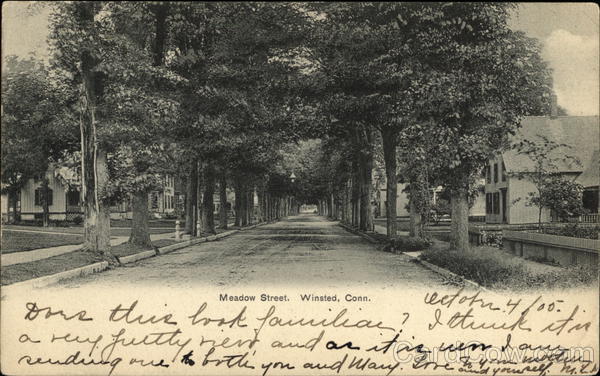 Meadow Street. Winsted, Conn.
October 4/05.
Does this look familiar? I think it is
a very pretty view and as it is new I am
sending one to both you and Mary. Love to your mother
and yourself. M.
CardCow.com